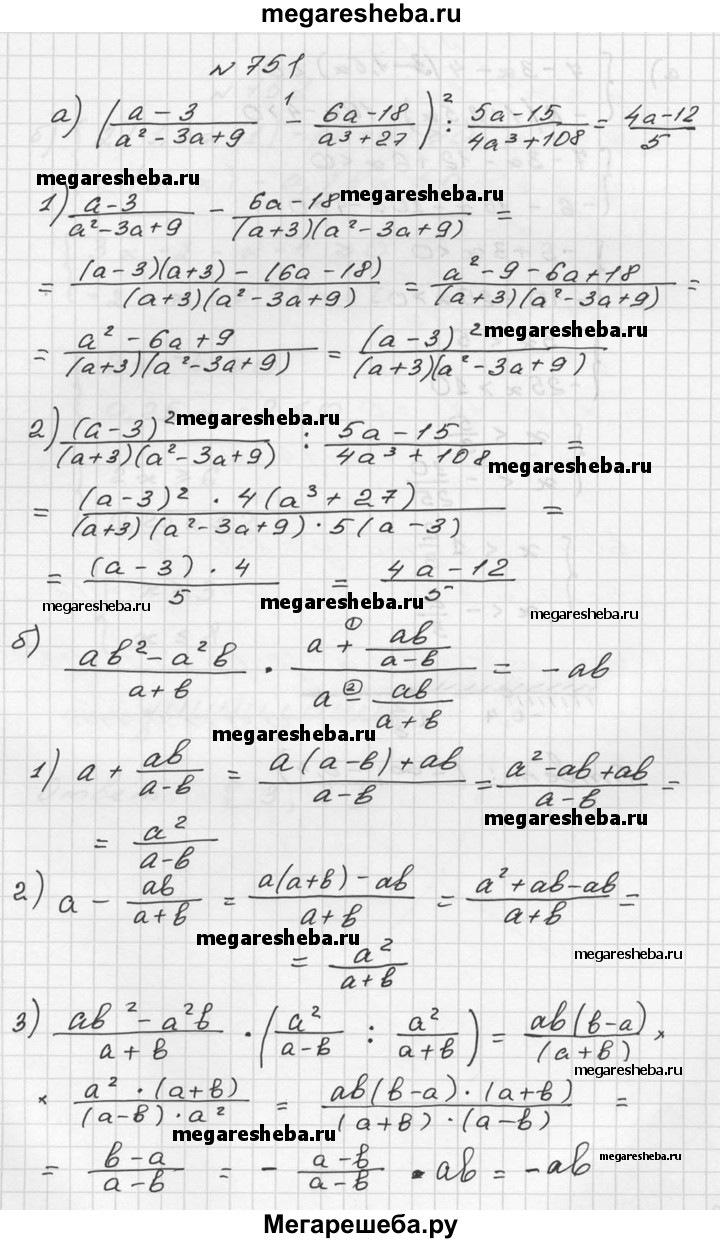 megaresheba.ru
№ 751
а) ( (a-3)/(a²-3a+9) -¹ (6a-18)/(a³+27) ) :² (5a-15)/(4a³+108) = (4a-12)/5
megaresheba.ru
1) (a-3)/(a²-3a+9) - (6a-18)/((a+3)(a²-3a+9)) = megaresheba.ru
= ((a-3)(a+3) - (6a-18))/((a+3)(a²-3a+9)) = (a²-9-6a+18)/((a+3)(a²-3a+9)) =
= (a²-6a+9)/((a+3)(a²-3a+9)) = (a-3)²/((a+3)(a²-3a+9)) megaresheba.ru
2) (a-3)²/((a+3)(a²-3a+9)) : (5a-15)/(4a³+108) = megaresheba.ru megaresheba.ru
= ((a-3)² · 4(a³+27))/((a+3)(a²-3a+9) · 5(a-3)) =
= ((a-3) · 4)/5 = (4a-12)/5
megaresheba.ru megaresheba.ru megaresheba.ru
б) (ab²-a²b)/(a+b) · (a +① ab/(a-b))/(a -② ab/(a+b)) = -ab
megaresheba.ru
1) a + ab/(a-b) = (a(a-b)+ab)/(a-b) = (a²-ab+ab)/(a-b) =
megaresheba.ru
= a²/(a-b)
2) a - ab/(a+b) = (a(a+b)-ab)/(a+b) = (a²+ab-ab)/(a+b) =
megaresheba.ru
= a²/(a+b) megaresheba.ru
3) (ab²-a²b)/(a+b) · ( a²/(a-b) : a²/(a+b) ) = ab(b-a)/(a+b) ×
megaresheba.ru
× (a² · (a+b))/((a-b) · a²) = (ab(b-a) · (a+b))/((a+b) · (a-b)) =
megaresheba.ru
= (b-a)/(a-b) = - (a-b)/(a-b) · ab = -ab megaresheba.ru
Мегарешеба.ру